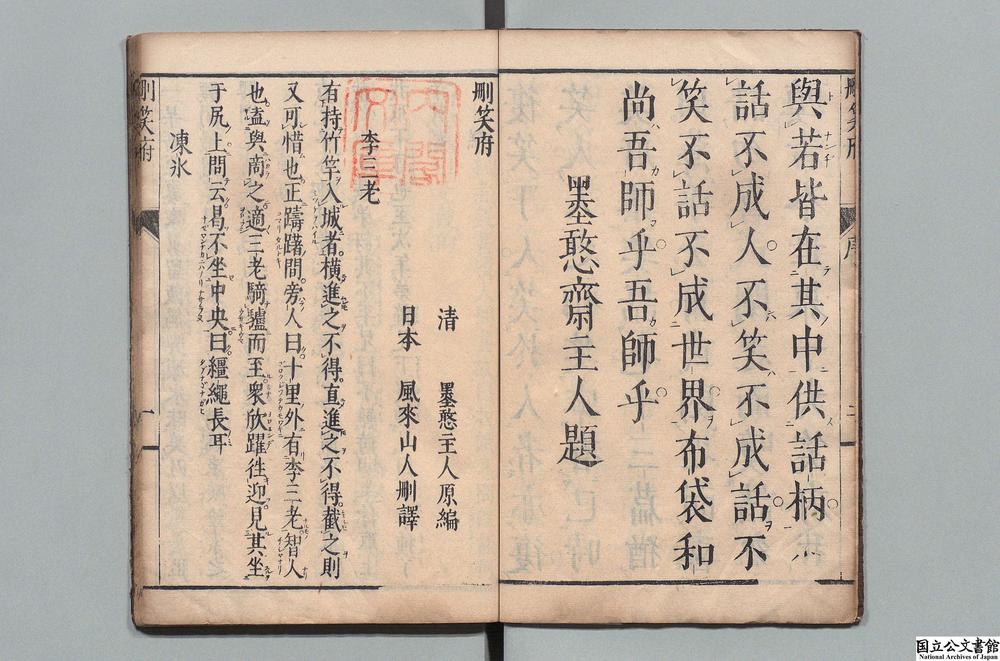 與若皆在其中供話柄
話不成人不笑不成話不
笑不話不成世界布袋和
尚吾師乎吾師乎
墨憨齋主人題
刪笑府
清 墨憨主人原編
日本 風來山人刪譯
李三老
有持竹竿入城者橫進之不得直進之不得截之則
又可惜也正躊躇間旁人曰十里外有李三老智人
也盍與商之適三老騎驢而至衆欣躍徃迎見其坐
于尻上問云曷不坐中央曰繮繩長耳
凍氷
刪笑府
国立公文書館
National Archives of Japan